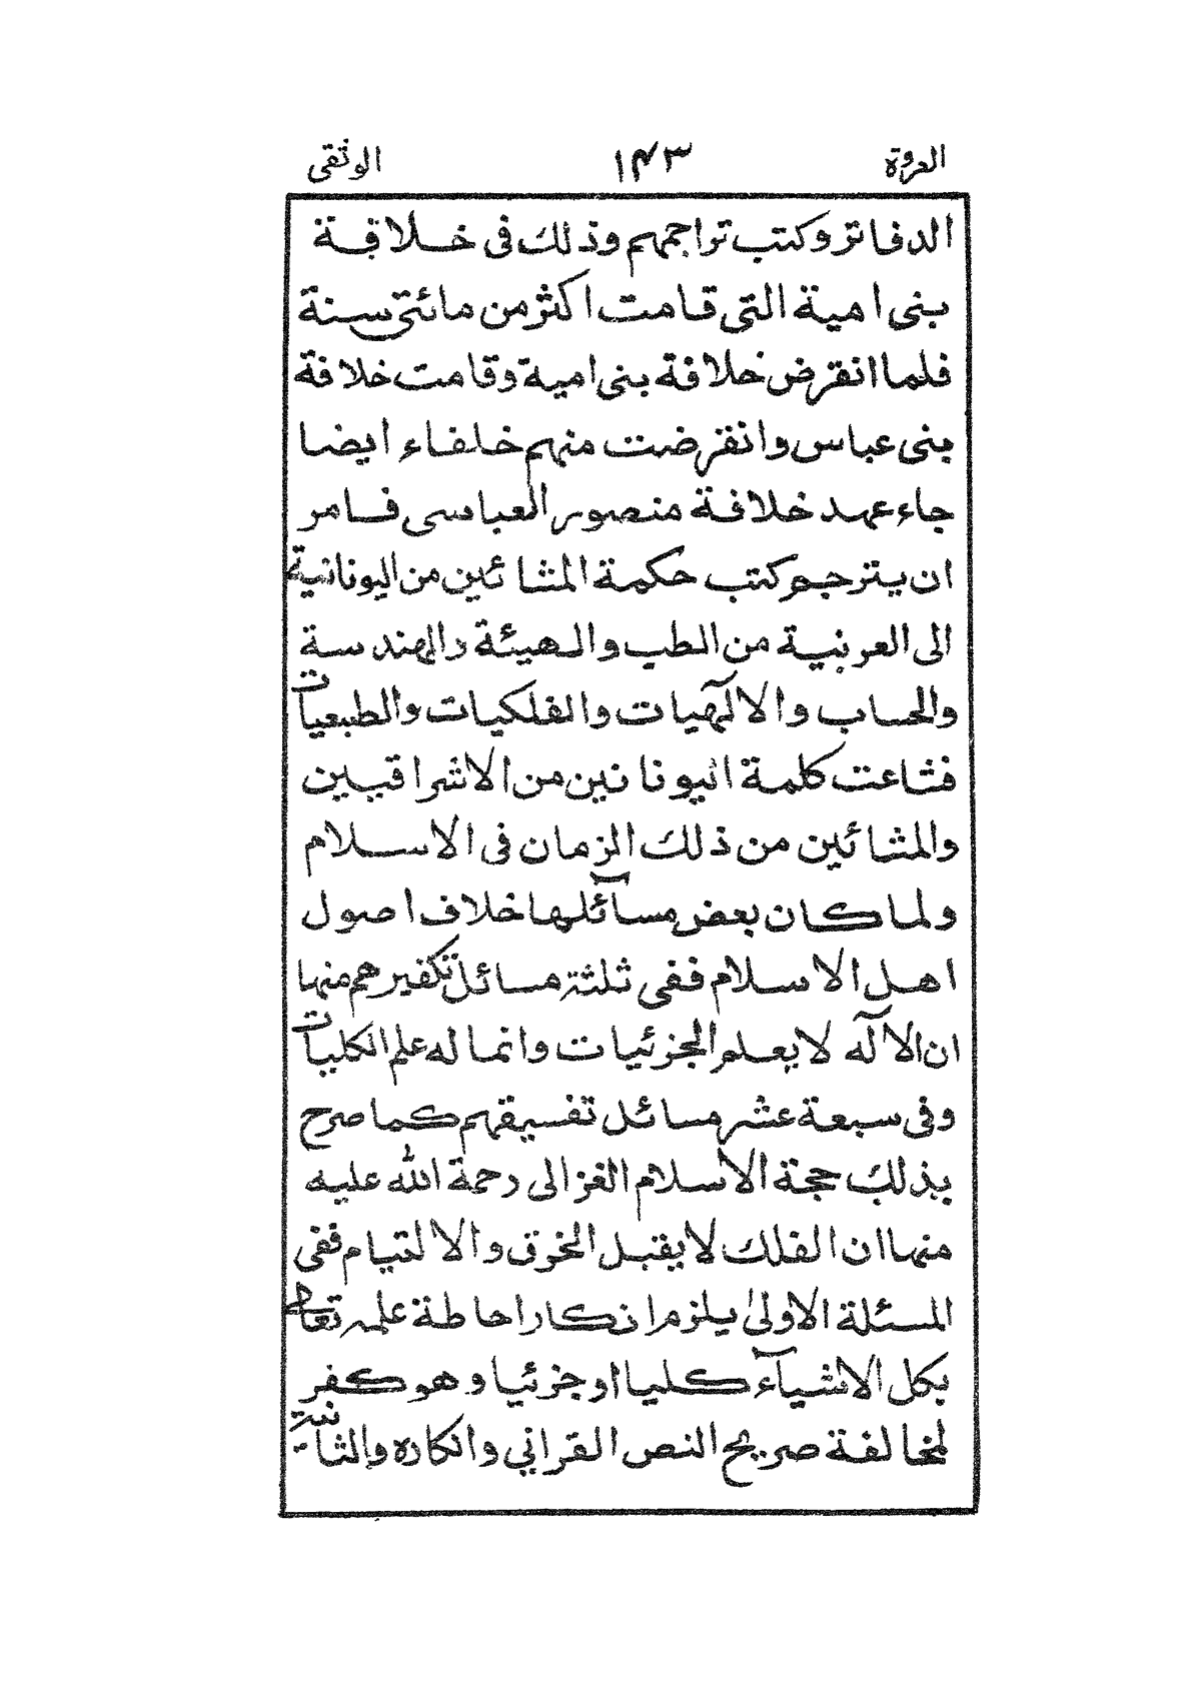 العروة ۱۴۳ الوثقى
الدفاتر وكتب تراجمهم وذلك فى خلافة
بنى امية التى قامت اكثر من مائتى سنة
فلما انقرض خلافة بنى امية وقامت خلافة
بنى عباس وانقرضت منهم خلفاء ايضا
جاء عهد خلافة منصور العباسى فامر
ان يترجم كتب حكمة المشائين من اليونانية
الى العربية من الطب والهيئة والهندسة
والحساب والالٓهيات والفلكيات والطبعيات
فشاعت كلمة اليونانين من الاشراقيين
والمشائين من ذلك الزمان فى الاسلام
ولما كان بعض مسآئلها خلاف اصول
اهل الاسلام ففى ثلثة مسائل تكفيرهم منها
ان الالٓه لا يعلم الجزئيات وانما له علم الكليات
وفى سبعة عشر مسائل تفسيقهم كما صرح
بذلك حجة الاسلام الغزالى رحمة الله عليه
منها ان الفلك لا يقبل الخرق والالتيام ففى
المسئلة الاولىٰ يلزم انكار احاطة علمه تعالى
بكل الاشيآء كليا او جزئيا وهو كفر
لمخالفة صريح النص القرانى وانكاره والثانية